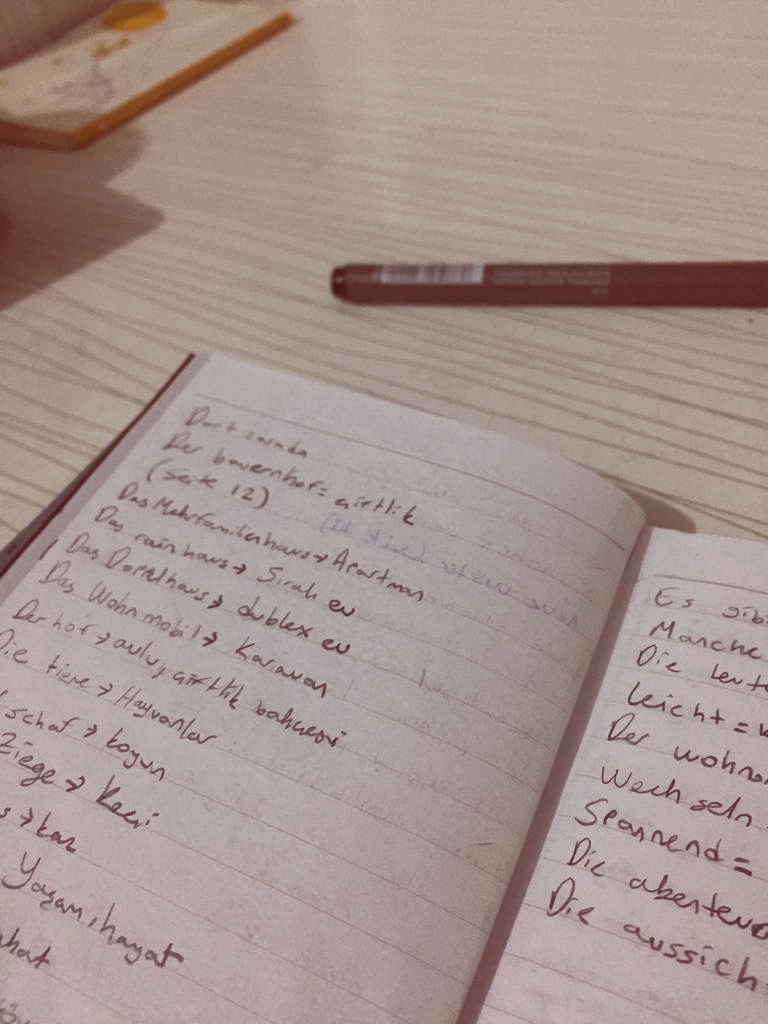 Dort = orada
Der bauernhof = çiftlik
(Seite 12)
Das Mehrfamilienhaus → Apartman
Das rainhaus → Sıralı ev
Das Doppelhaus → dublex ev
Das Wohnmobil → Karavan
Der hof → avlu, çiftlik bahçesi
Die tiere → Hayvanlar
schaf → koyun
Ziege → Keçi
s → kaz
Yaşam, hayat
Es gib
Manche
Die leute
leicht =
Der wohno
Wechseln
Spannend =
Die abenteue
Die aussich